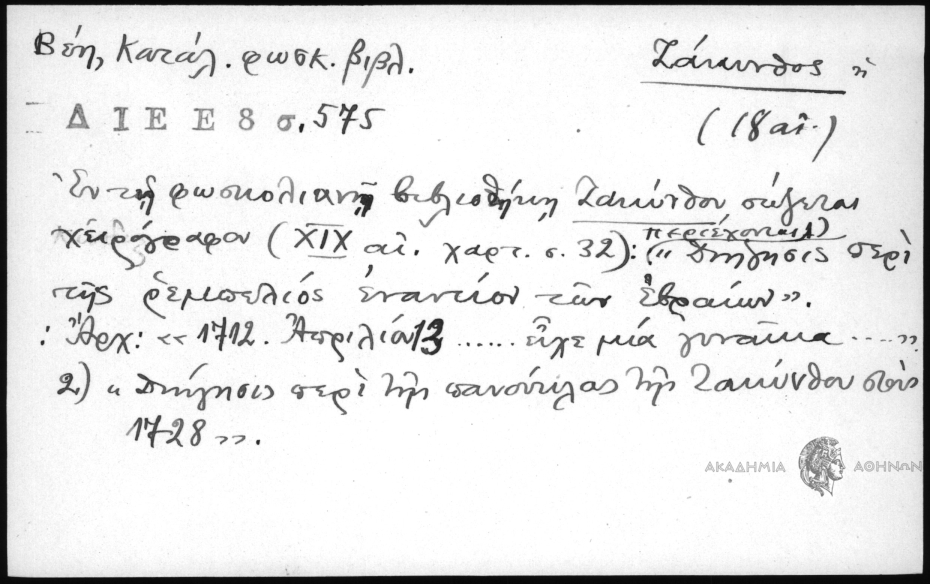 Βέη, Κατάλ. φωσκ. βιβλ.
Ζάκυνθος ἡ
Δ Ι Ε Ε 8 σ. 575
(18 αἰ.)
Ἐν τῇ φωσκολιανῇ βιβλιοθήκῃ Ζακύνθου σώζεται
χειρόγραφον (XIX αἰ. χαρτ. σ. 32): περιέχονται 1) « Διήγησις περὶ
τῆς ῥεμπελιός ἐναντίον τῶν ἑβραίων ».
: Ἀρχ: « 1712. Ἀπριλίου 13 ...... εἶχε μία γυναῖκα .... »
2) « Διήγησις περὶ τῆς πανούκλας τῆς Ζακύνθου στοὺς
1728 ».
ΑΚΑΔΗΜΙΑ ΑΘΗΝΩΝ